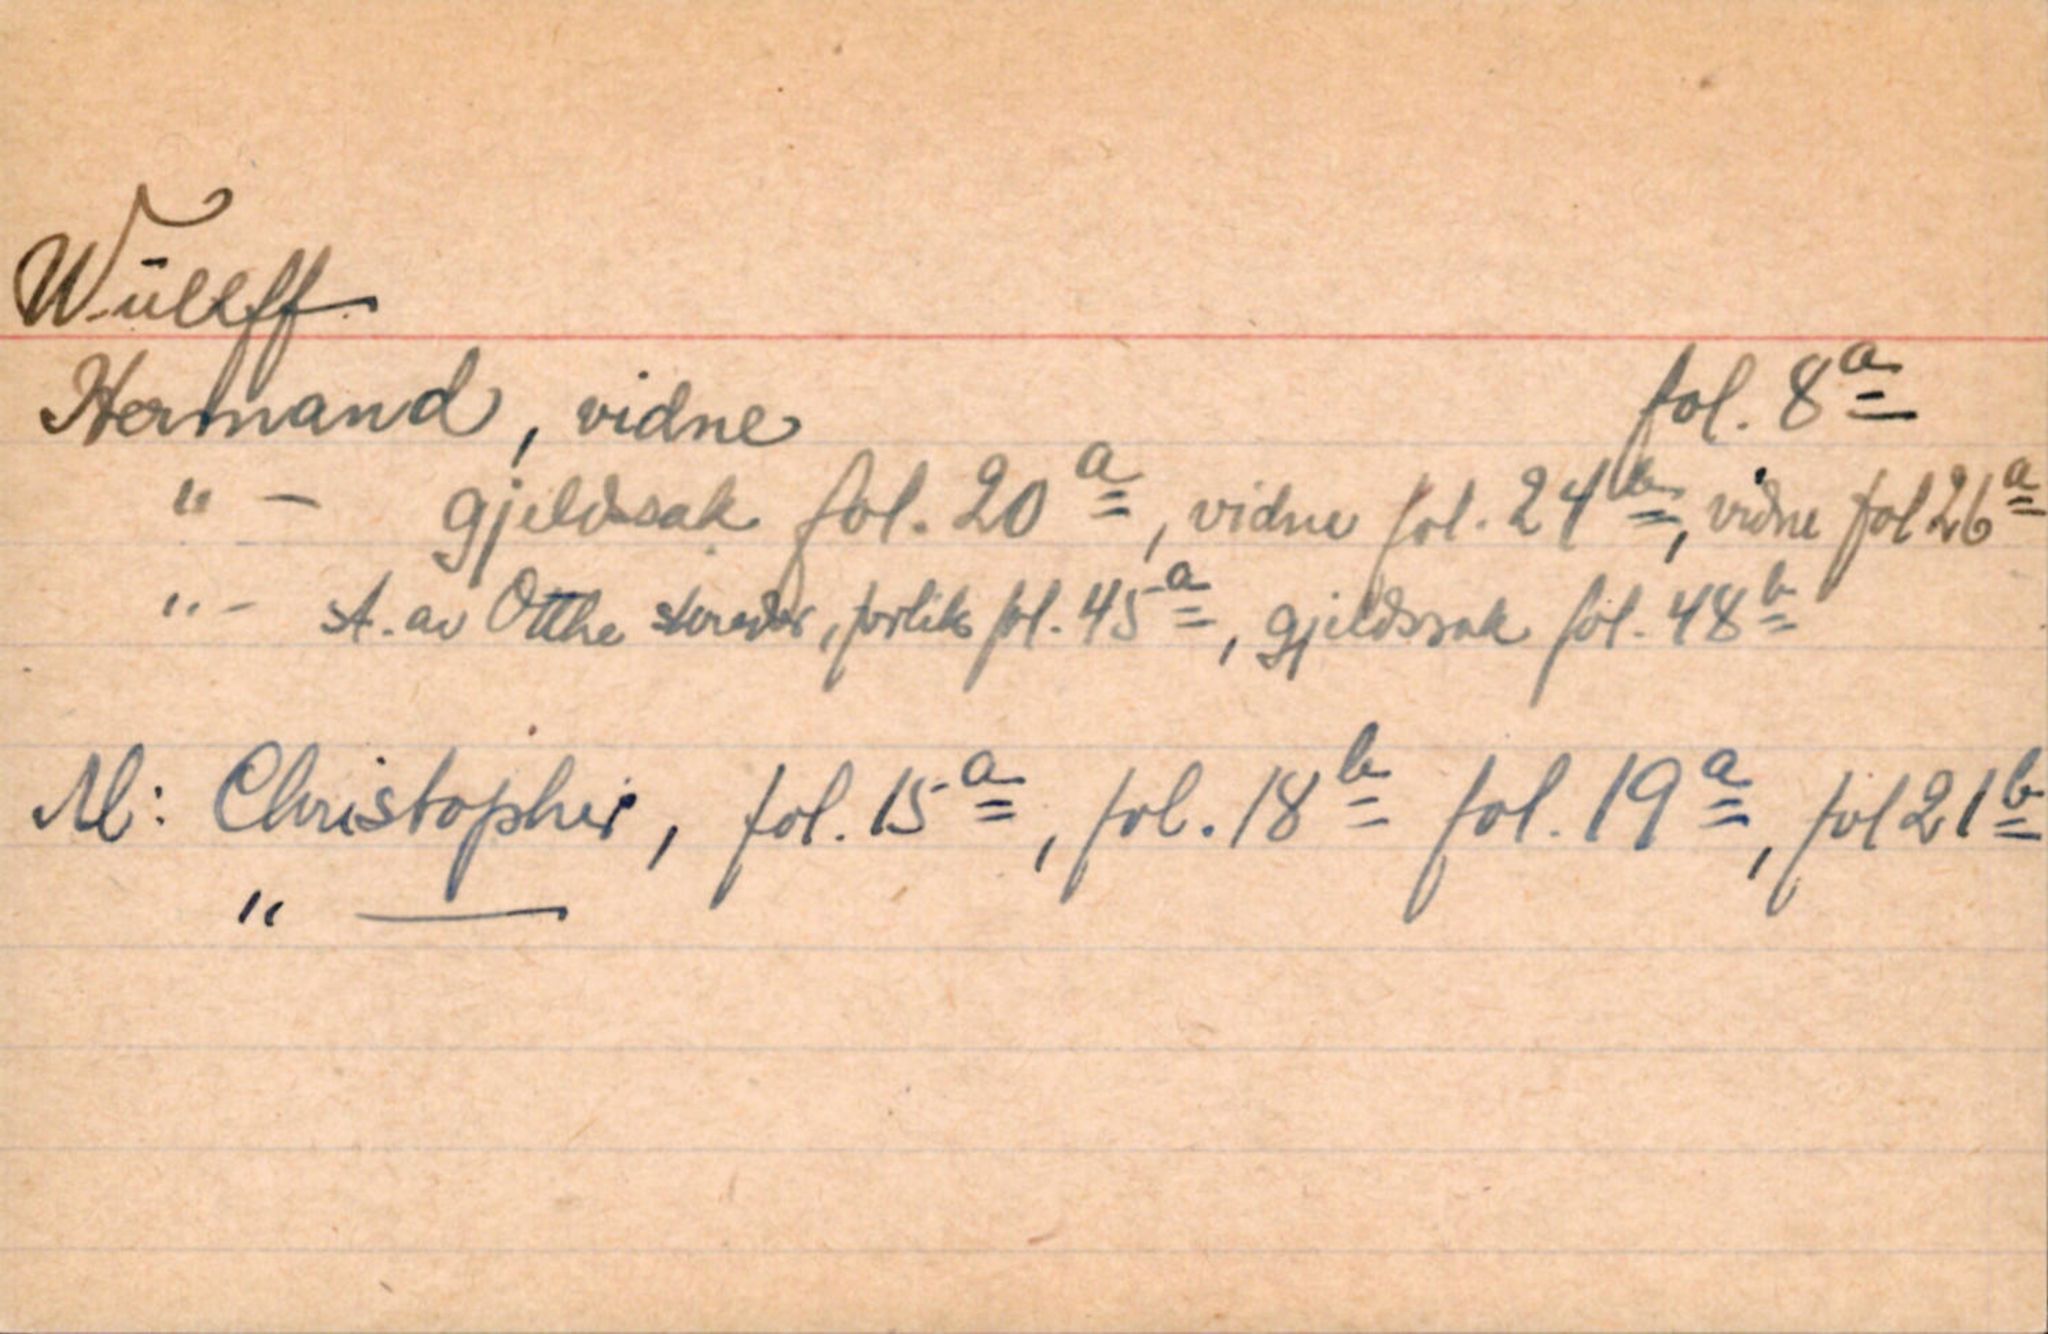 Wüllff
Hermand, vidne fol. 8a
" - gjeldssak fol. 20a, vidne fol. 24b, vidne fol 26a
" - st. av Otthe skreder, forlik fol. 45a, gjeldssak fol. 48b
M: Christopher, fol. 15a, fol. 18b fol. 19a, fol 21b
" —